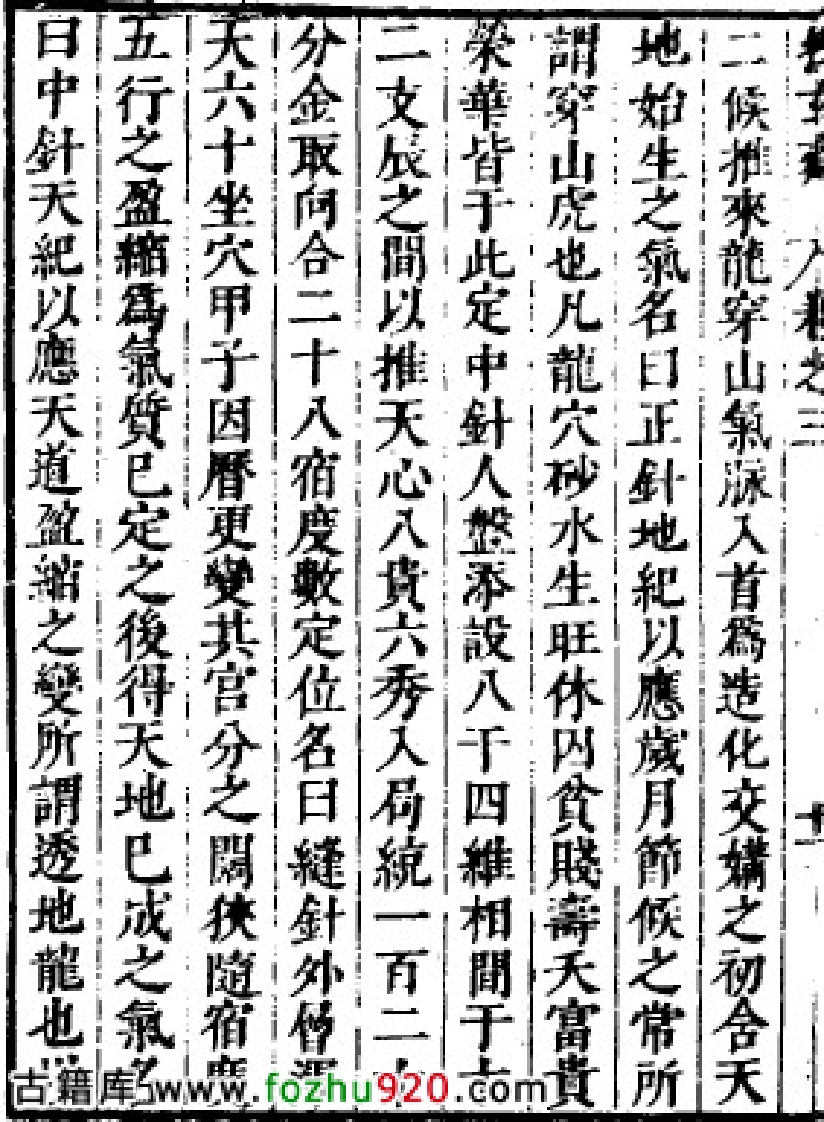 卷之三
二候推來龍穿山氣脉入首爲造化交媾之初含天
地始生之氣名曰正針地紀以應歲月節候之常所
謂穿山虎也凡龍穴砂水生旺休囚貧賤壽夭富貴
榮華皆于此定中針人盤添設八干四維相間于十
二支辰之間以推天心八貴六秀入局統一百二十
分金取向合二十八宿度數定位名曰縫針外
天六十坐穴甲子因曆更變其宫分之闊狹隨宿度
五行之盈縮爲氣質已定之後得天地已成之氣名
曰中針天紀以應天道盈縮之變所謂透地龍也
古籍库 www.fozhu920.com